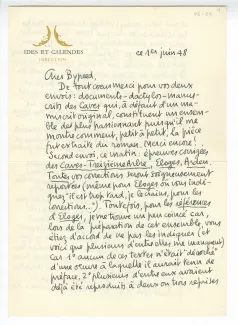 IDES ET CALENDES
DIRECTION
ce 1er juin 48
Cher
De tout cœur merci pour vos deux
envois: documents-dactylos-manus-
crits des Caves qui, à défaut d'un ma-
nuscrit original, constituent un ensem-
ble des plus passionnant puisqu'il me
montre comment, petit à petit, la pièce
fut extraite du roman. Merci encore!
Second envoi, ce matin: épreuves corrigées
des Caves-Treizième Arbre, Eloges, Arden.
Toutes vos corrections seront soigneusement
reportées (même pour Eloges où vous indi-
quez "il est trop tard, je le crains, pour les
corrections..."). Toutefois, pour les références
d'Eloges, je me trouve un peu coincé car,
lors de la préparation de cet ensemble, vous
étiez d'accord de ne pas les indiquer (et
voici que plusieurs d'entre elles me manquent)
car 1° aucun de ces textes n'était "décroché"
d'une œuvre à laquelle il aurait tenu de
préface, 2° plusieurs d'entre eux avaient
déjà été reproduits à deux ou trois reprises